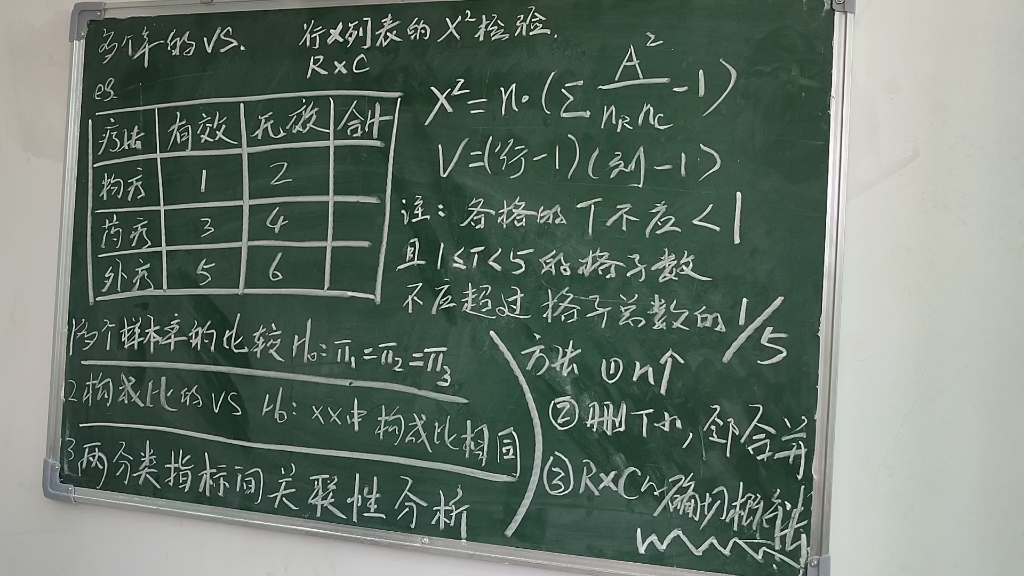 多个率的VS. 行×列表的X²检验.
R×C
eg.
疗法 有效 无效 合计
物疗 1 2
药疗 3 4
外疗 5 6
X²=n·(Σ A²/nRnC -1)
V=(行-1)(列-1)
注: 各格的T不应<1
且1≤T<5的格子数
不应超过格子总数的1/5
1多个样本率的比较 H₀: π₁=π₂=π₃
2构成比的VS H₀: xx中构成比相同
3两分类指标间关联性分析
方法 ①n↑
②删T小,邻合并
③R×C 确切概率法